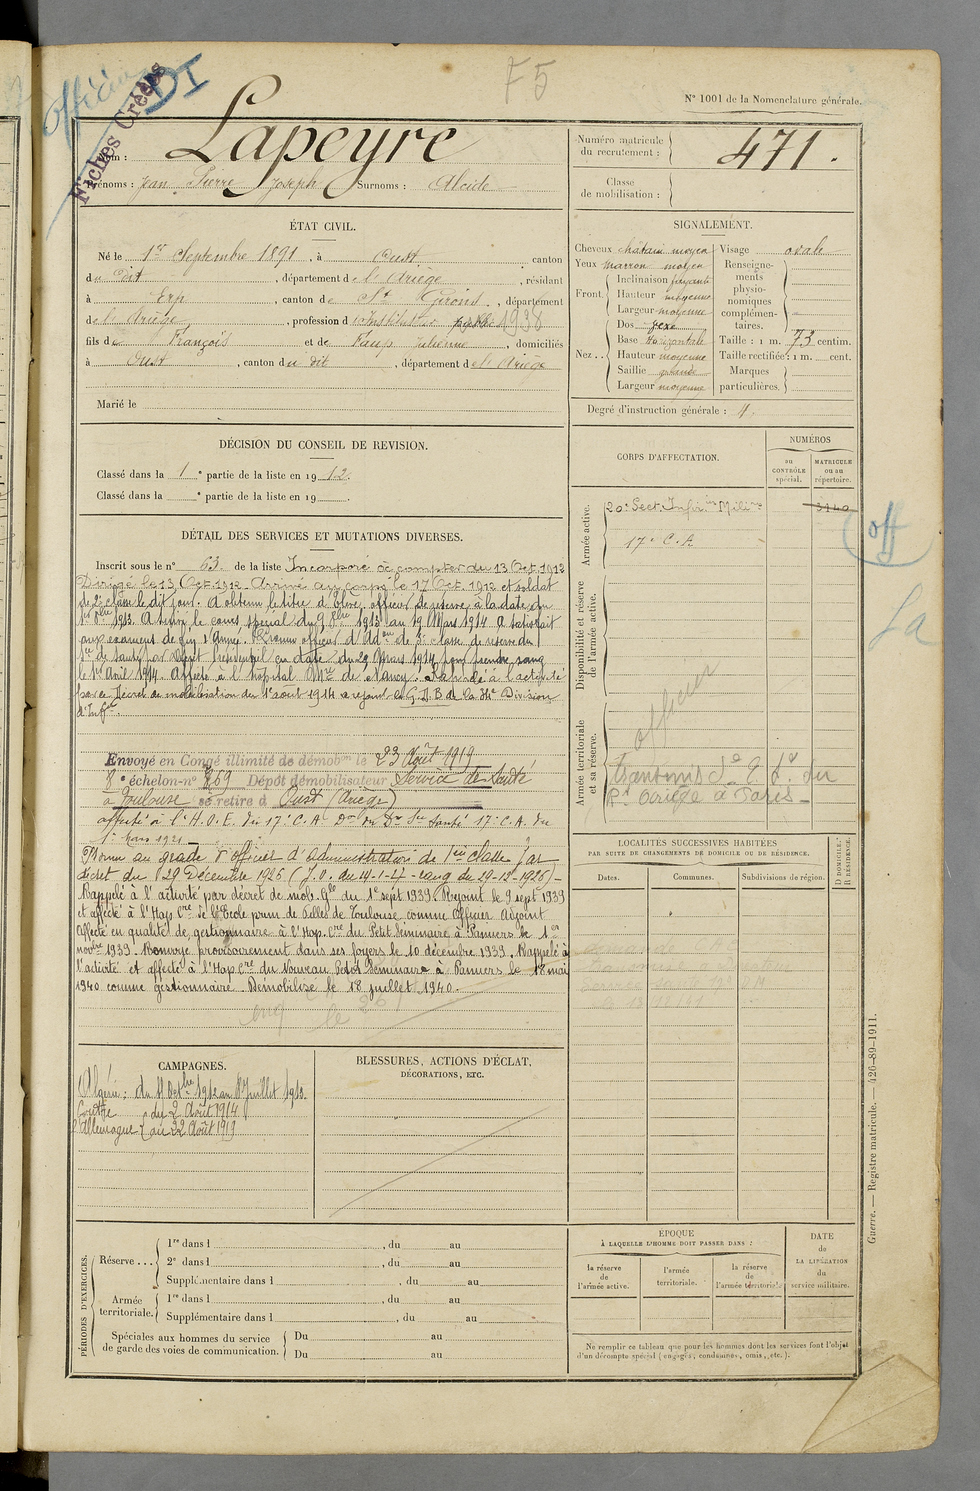 officier DI
F5
Fiches Créées
N° 1001 de la Nomenclature générale.
Nom : Lapeyre
Prénoms : Jean Pierre Joseph Surnoms : Alcide
Numéro matricule du recrutement : 471.
Classe de mobilisation :
ÉTAT CIVIL.
Né le 1er Septembre 1891, à Oust canton
du dit, département de l'Ariège, résidant
à Erp, canton de St Girons, département
de l'Ariège, profession d'Instituteur 1938
fils de François et de Faup Julienne, domiciliés
à Oust, canton du dit, département de l'Ariège
Marié le
SIGNALEMENT.
Cheveux châtain moyen
Yeux marron moyen
Front. Inclinaison fuyante
Hauteur moyenne
Largeur moyenne
Nez... Dos
Base horizontale
Hauteur moyenne
Saillie grande
Largeur moyenne
Visage ovale
Renseignements physionomiques complémentaires.
Taille : 1 m. 73 centim.
Taille rectifiée : 1 m. cent.
Marques particulières.
Degré d'instruction générale : 4.
DÉCISION DU CONSEIL DE REVISION.
Classé dans la 1e partie de la liste en 1912.
Classé dans la e partie de la liste en 19 .
CORPS D'AFFECTATION.
NUMÉROS
au CONTRÔLE spécial.
MATRICULE ou au répertoire.
Armée active.
20e Sect. Infirm. Milit. 3140
17e C.A
Disponibilité et réserve de l'armée active.
Armée territoriale et sa réserve.
officier
Transmis
à Paris
off
La
DÉTAIL DES SERVICES ET MUTATIONS DIVERSES.
Inscrit sous le n° 63 de la liste Incorporé à compter du 13 Oct. 1912
Dirigé le 13 Oct. 1912. Arrivé au corps le 17 Oct. 1912 et soldat
de 2e classe le dit jour. A obtenu le titre d'élève officier de réserve à la date du
1er 8bre 1913. A suivi le cours spécial du 9 8bre 1913 au 19 Mars 1914. A satisfait
aux examens de fin d'année. Promu officier d'Adon de 3e classe de réserve du
Sce de Santé par décret Présidentiel en date du 29 Mars 1914, pour prendre rang
le 1er Avril 1914. Affecté à l'hôpital Mre de Nancy. Rappelé à l'activité
par le Décret de mobilisation du 1er août 1914 a rejoint le G.B.D de la 34e Division
d'Infie.
Envoyé en Congé illimité de démobon le 23 Août 1919
8e échelon-n° 269 Dépôt démobilisateur Service de Santé
à Toulouse se retire à Oust (Ariège)
affecté à l'H.O.E. du 17e C.A. Don du Sce Santé 17e C.A. du
1er Mars 1921
Promu au grade d'officier d'Administration de 1ère classe par
décret du 29 Décembre 1926 (J.O. du 19-1-27 - rang du 29-12-1926) -
Rappelé à l'activité par décret de mob. Gle du 1er sept 1939. Rejoint le 9 sept 1939
et affecté à l'Hop Cre de l'Ecole prim de Filles de Toulouse comme Officier Adjoint
Affecté en qualité de gestionnaire à l'Hop. Cre du Petit Séminaire à Pamiers le 1er
novbre 1939. Renvoyé provisoirement dans ses foyers le 10 décembre 1939. Rappelé à
l'activité et affecté à l'Hop Cre du Nouveau Petit Séminaire à Pamiers le 18 mai
1940 comme gestionnaire. Démobilisé le 18 juillet 1940.
LOCALITÉS SUCCESSIVES HABITÉES
PAR SUITE DE CHANGEMENTS DE DOMICILE OU DE RÉSIDENCE.
Dates. Communes. Subdivisions de région. D. DOMICILE. R. RÉSIDENCE.
CAMPAGNES.
Algérie : du 17 Octbre 1912 au 8 Juillet 1913.
Contre l'Allemagne du 2 Août 1914
au 22 Août 1919
BLESSURES, ACTIONS D'ÉCLAT,
DÉCORATIONS, ETC.
PÉRIODES D'EXERCICES.
Réserve... 1re dans l , du au
2e dans l , du au
Supplémentaire dans l , du au
Armée territoriale. 1re dans l , du au
Supplémentaire dans l , du au
Spéciales aux hommes du service de garde des voies de communication. Du au
Du au
ÉPOQUE
À LAQUELLE L'HOMME DOIT PASSER DANS :
la réserve de l'armée active.
l'armée territoriale.
la réserve de l'armée territoriale
DATE de LA LIBÉRATION du service militaire.
Ne remplir ce tableau que pour les hommes dont les services font l'objet
d'un décompte spécial (engagés, condamnés, omis, etc.).
Guerre. — Registre matricule. — 426-89-1911.